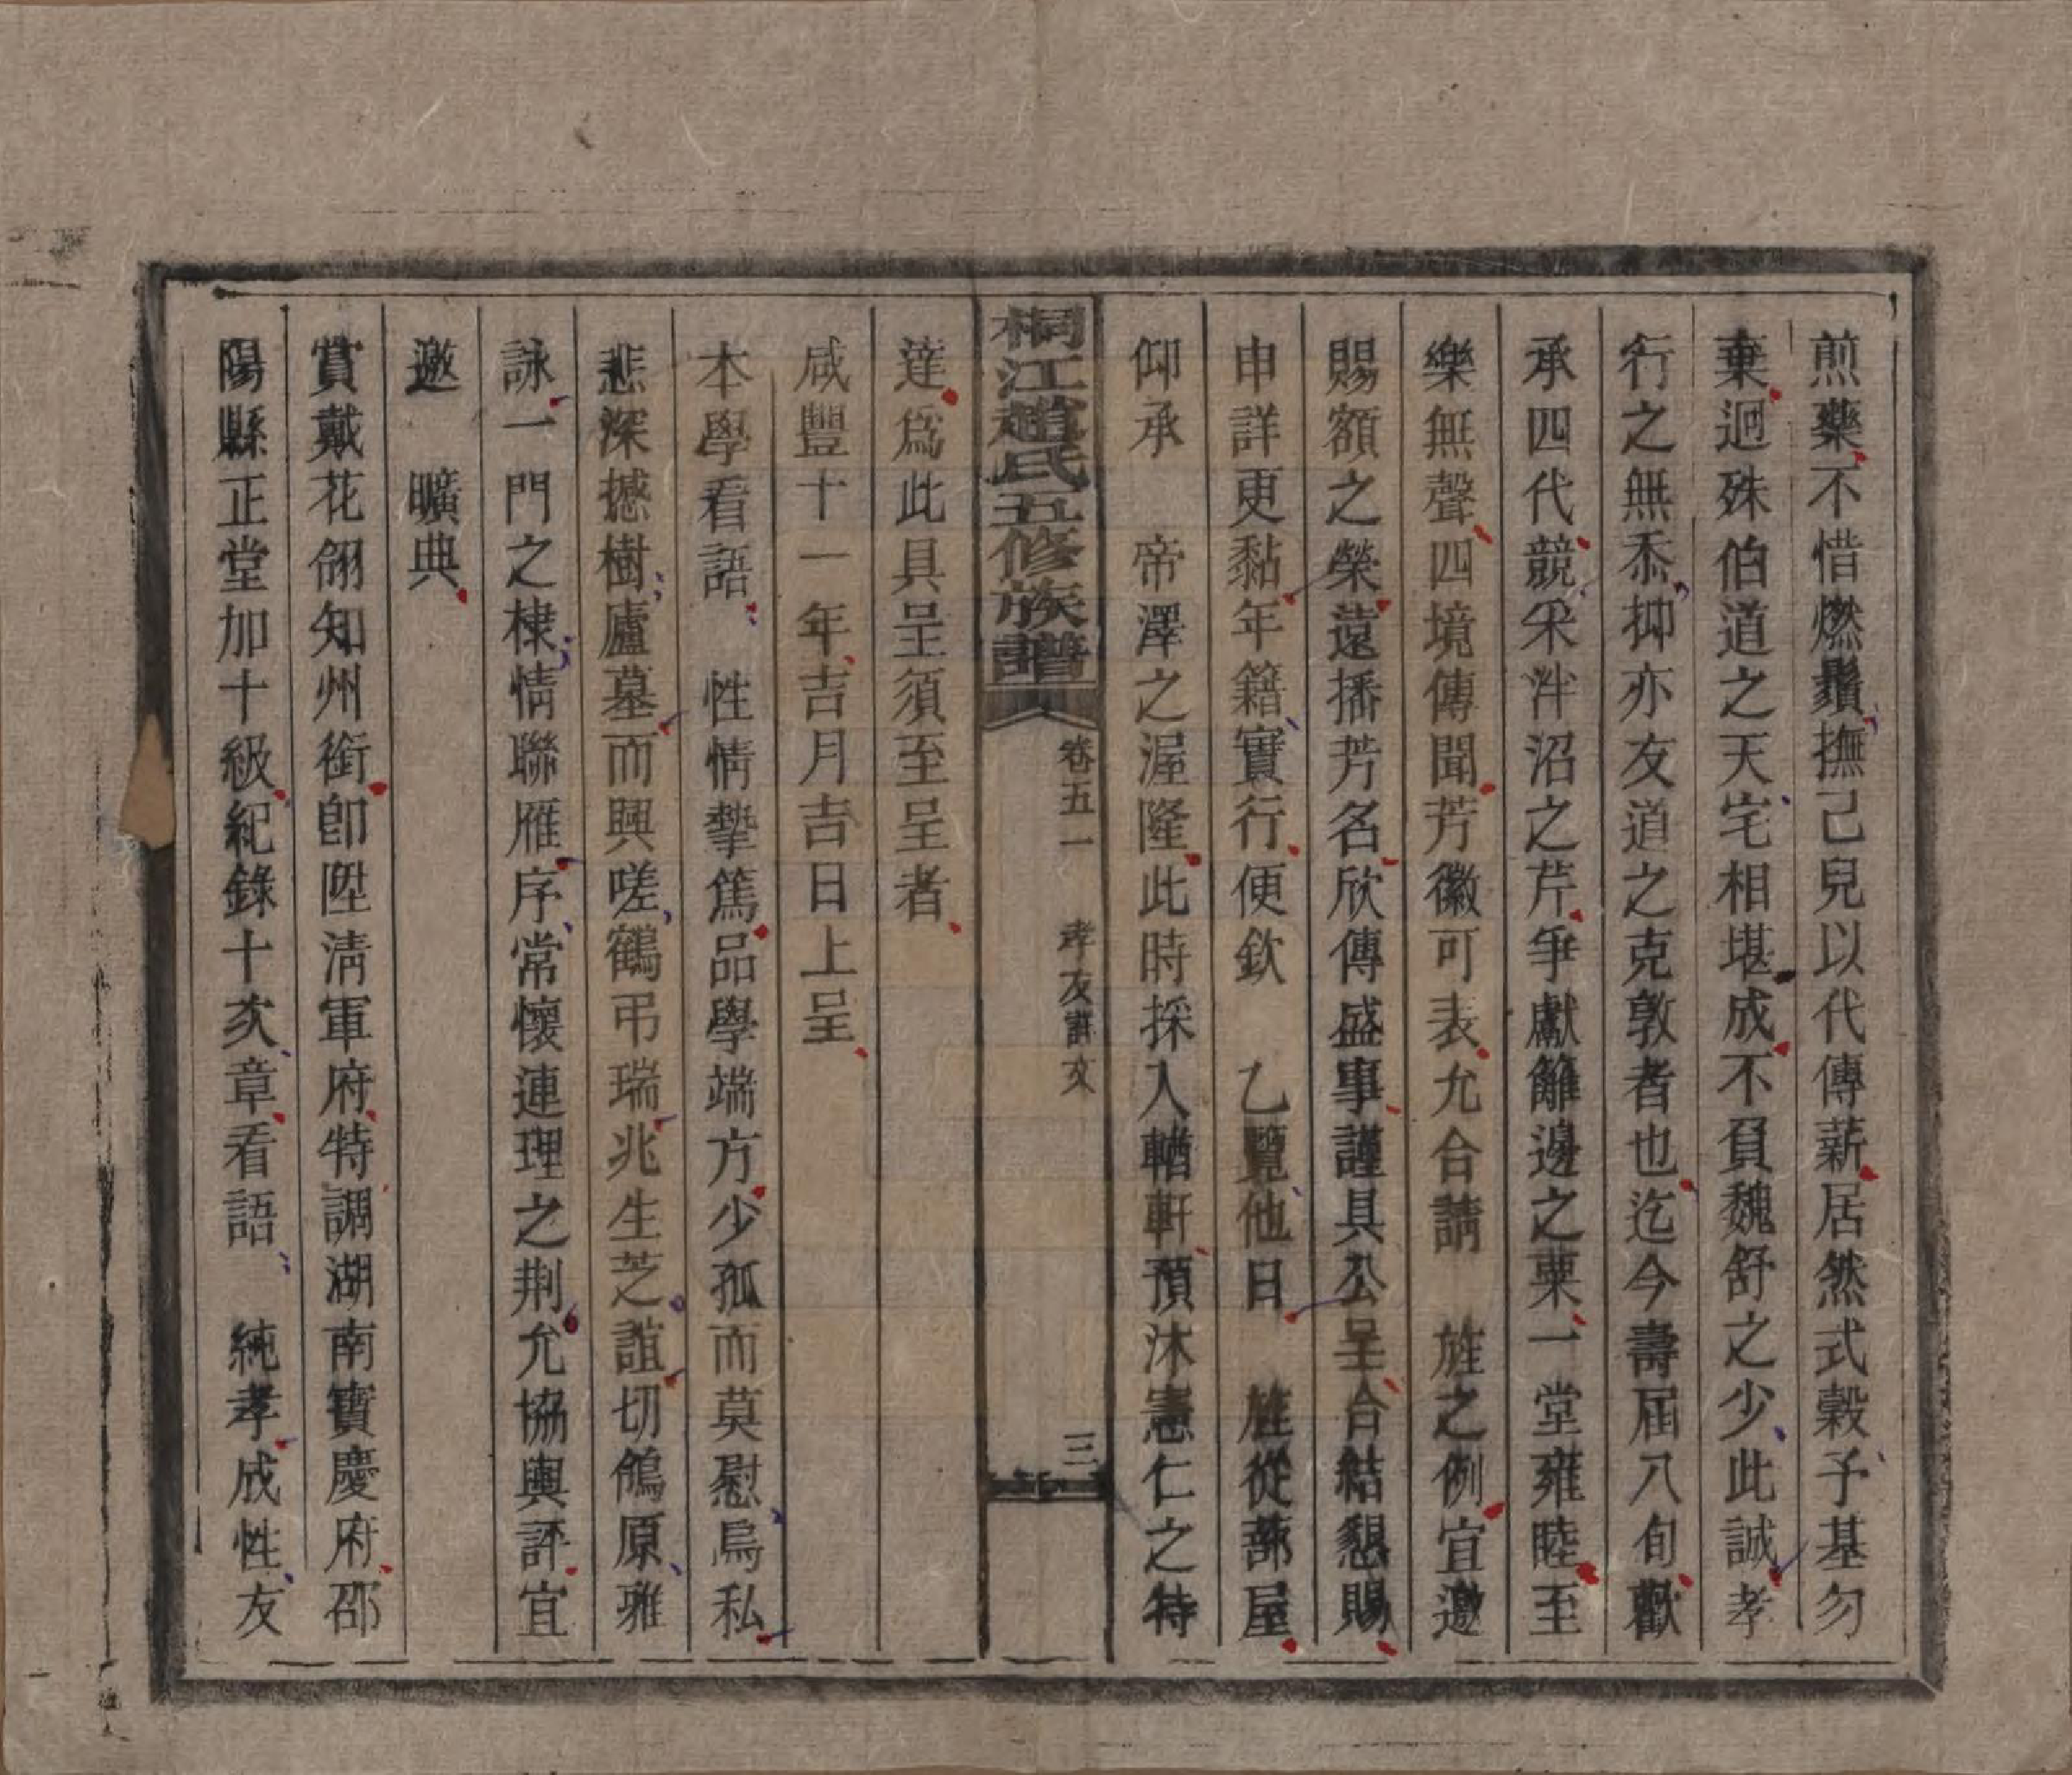 煎藥不惜燃鬚撫己兒以代傳薪居然式穀子基勿
棄迥殊伯道之天宅相堪成不負魏舒之少此誠孝
行之無忝抑亦友道之克敦者也迄今壽屆八旬歡
承四代競采泮沼之芹爭獻籬邊之粟一堂雍睦至
樂無聲四境傳聞芳徽可表允合請　旌之例宜邀
賜額之榮遠播芳名欣傳盛事謹具公呈合結懇賜
申詳更黏年籍實行便欽　乙覽他日　旌從蔀屋
仰承　帝澤之渥隆此時採入輶軒預沐憲仁之特
桐江趙氏五修族譜　卷五一　孝友詳文　三
達爲此具呈須至呈者
咸豐十一年吉月吉日上呈
本學看語　性情摯篤品學端方少孤而莫慰烏私
悲深撼樹廬墓而興嗟鶴弔瑞兆生芝誼切鴒原雅
詠一門之棣情聯雁序常懷連理之荆允協輿評宜
邀　曠典
賞戴花翎知州銜卽陞淸軍府特調湖南寶慶府邵
陽縣正堂加十級紀錄十次章看語　純孝成性友